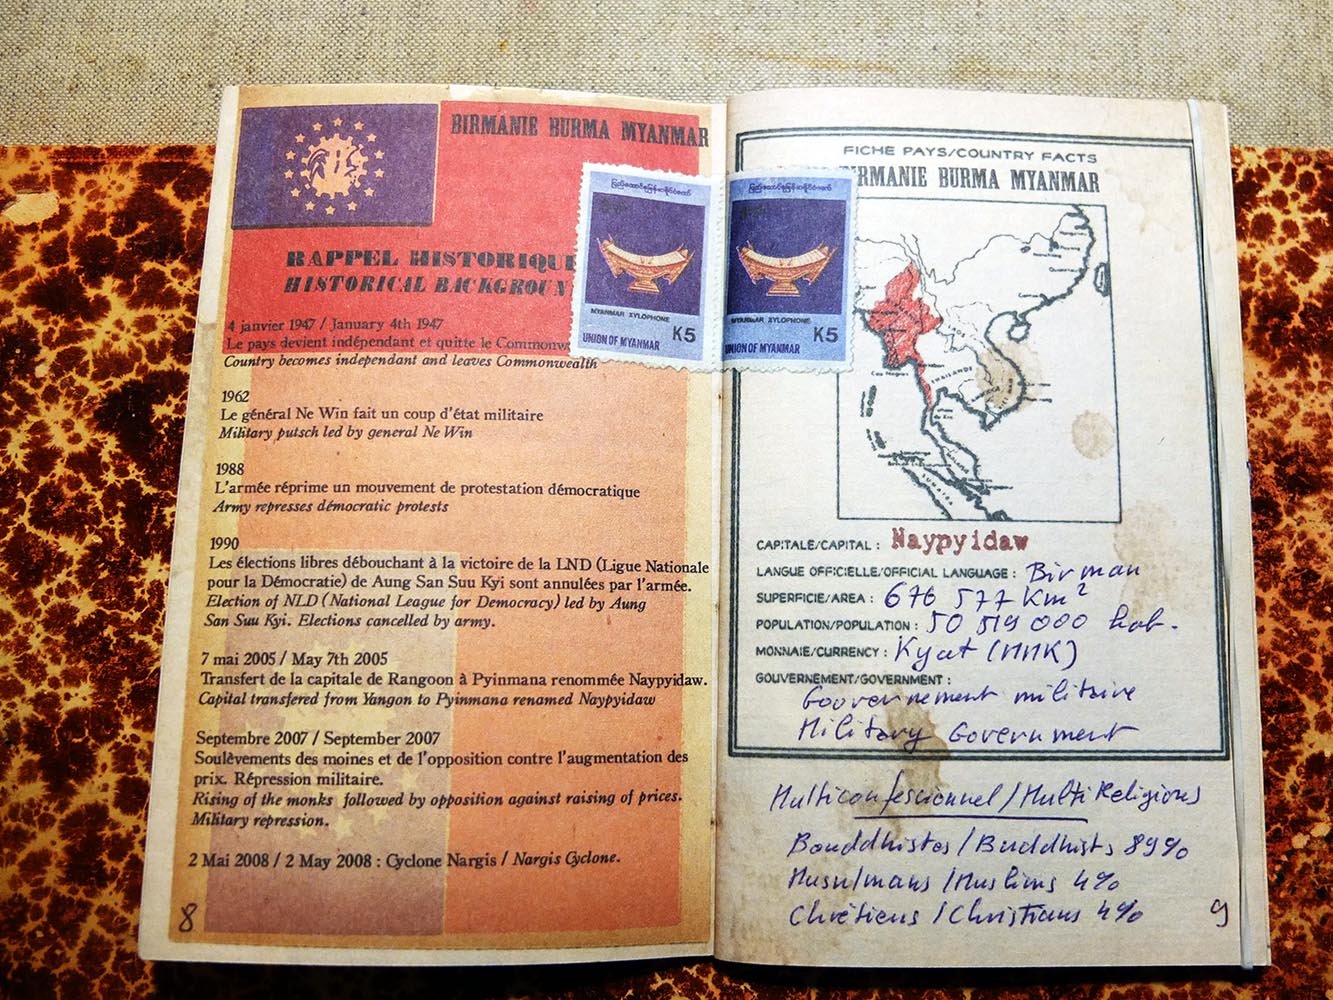 BIRMANIE BURMA MYANMAR
RAPPEL HISTORIQUE
HISTORICAL BACKGROUN
4 janvier 1947 / January 4th 1947
Le pays devient indépendant et quitte le Commonw
Country becomes independant and leaves Commonwealth
1962
Le général Ne Win fait un coup d'état militaire
Military putsch led by general Ne Win
1988
L'armée réprime un mouvement de protestation démocratique
Army represses démocratic protests
1990
Les élections libres débouchant à la victoire de la LND (Ligue Nationale
pour la Démocratie) de Aung San Suu Kyi sont annulées par l'armée.
Election of NLD (National League for Democracy) led by Aung
San Suu Kyi. Elections cancelled by army.
7 mai 2005 / May 7th 2005
Transfert de la capitale de Rangoon à Pyinmana renommée Naypyidaw.
Capital transfered from Yangon to Pyinmana renamed Naypyidaw
Septembre 2007 / September 2007
Soulèvements des moines et de l'opposition contre l'augmentation des
prix. Répression militaire.
Rising of the monks followed by opposition against raising of prices.
Military repression.
2 Mai 2008 / 2 May 2008 : Cyclone Nargis / Nargis Cyclone.
8
MYANMAR XYLOPHONE
K5
UNION OF MYANMAR
MYANMAR XYLOPHONE
K5
UNION OF MYANMAR
FICHE PAYS/COUNTRY FACTS
BIRMANIE BURMA MYANMAR
THAILANDE
SUMATRA
CAPITALE/CAPITAL : Naypyidaw
LANGUE OFFICIELLE/OFFICIAL LANGUAGE : Birman
SUPERFICIE/AREA : 676 577 Km²
POPULATION/POPULATION : 50 519 000 hab.
MONNAIE/CURRENCY : Kyat (MMK)
GOUVERNEMENT/GOVERNMENT :
Gouvernement militaire
Military Government
Multiconfessionnel / Multi Religious
Bouddhistes / Buddhists 89%
Musulmans / Muslims 4%
Chrétiens / Christians 4%
9